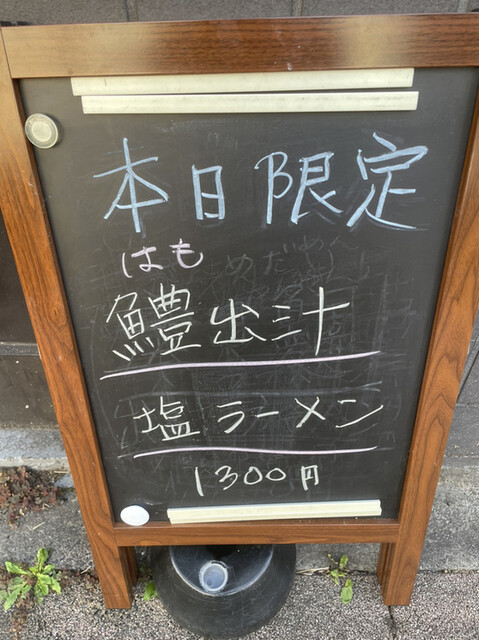 本日限定
はも
鱧出汁
塩ラーメン
1300円